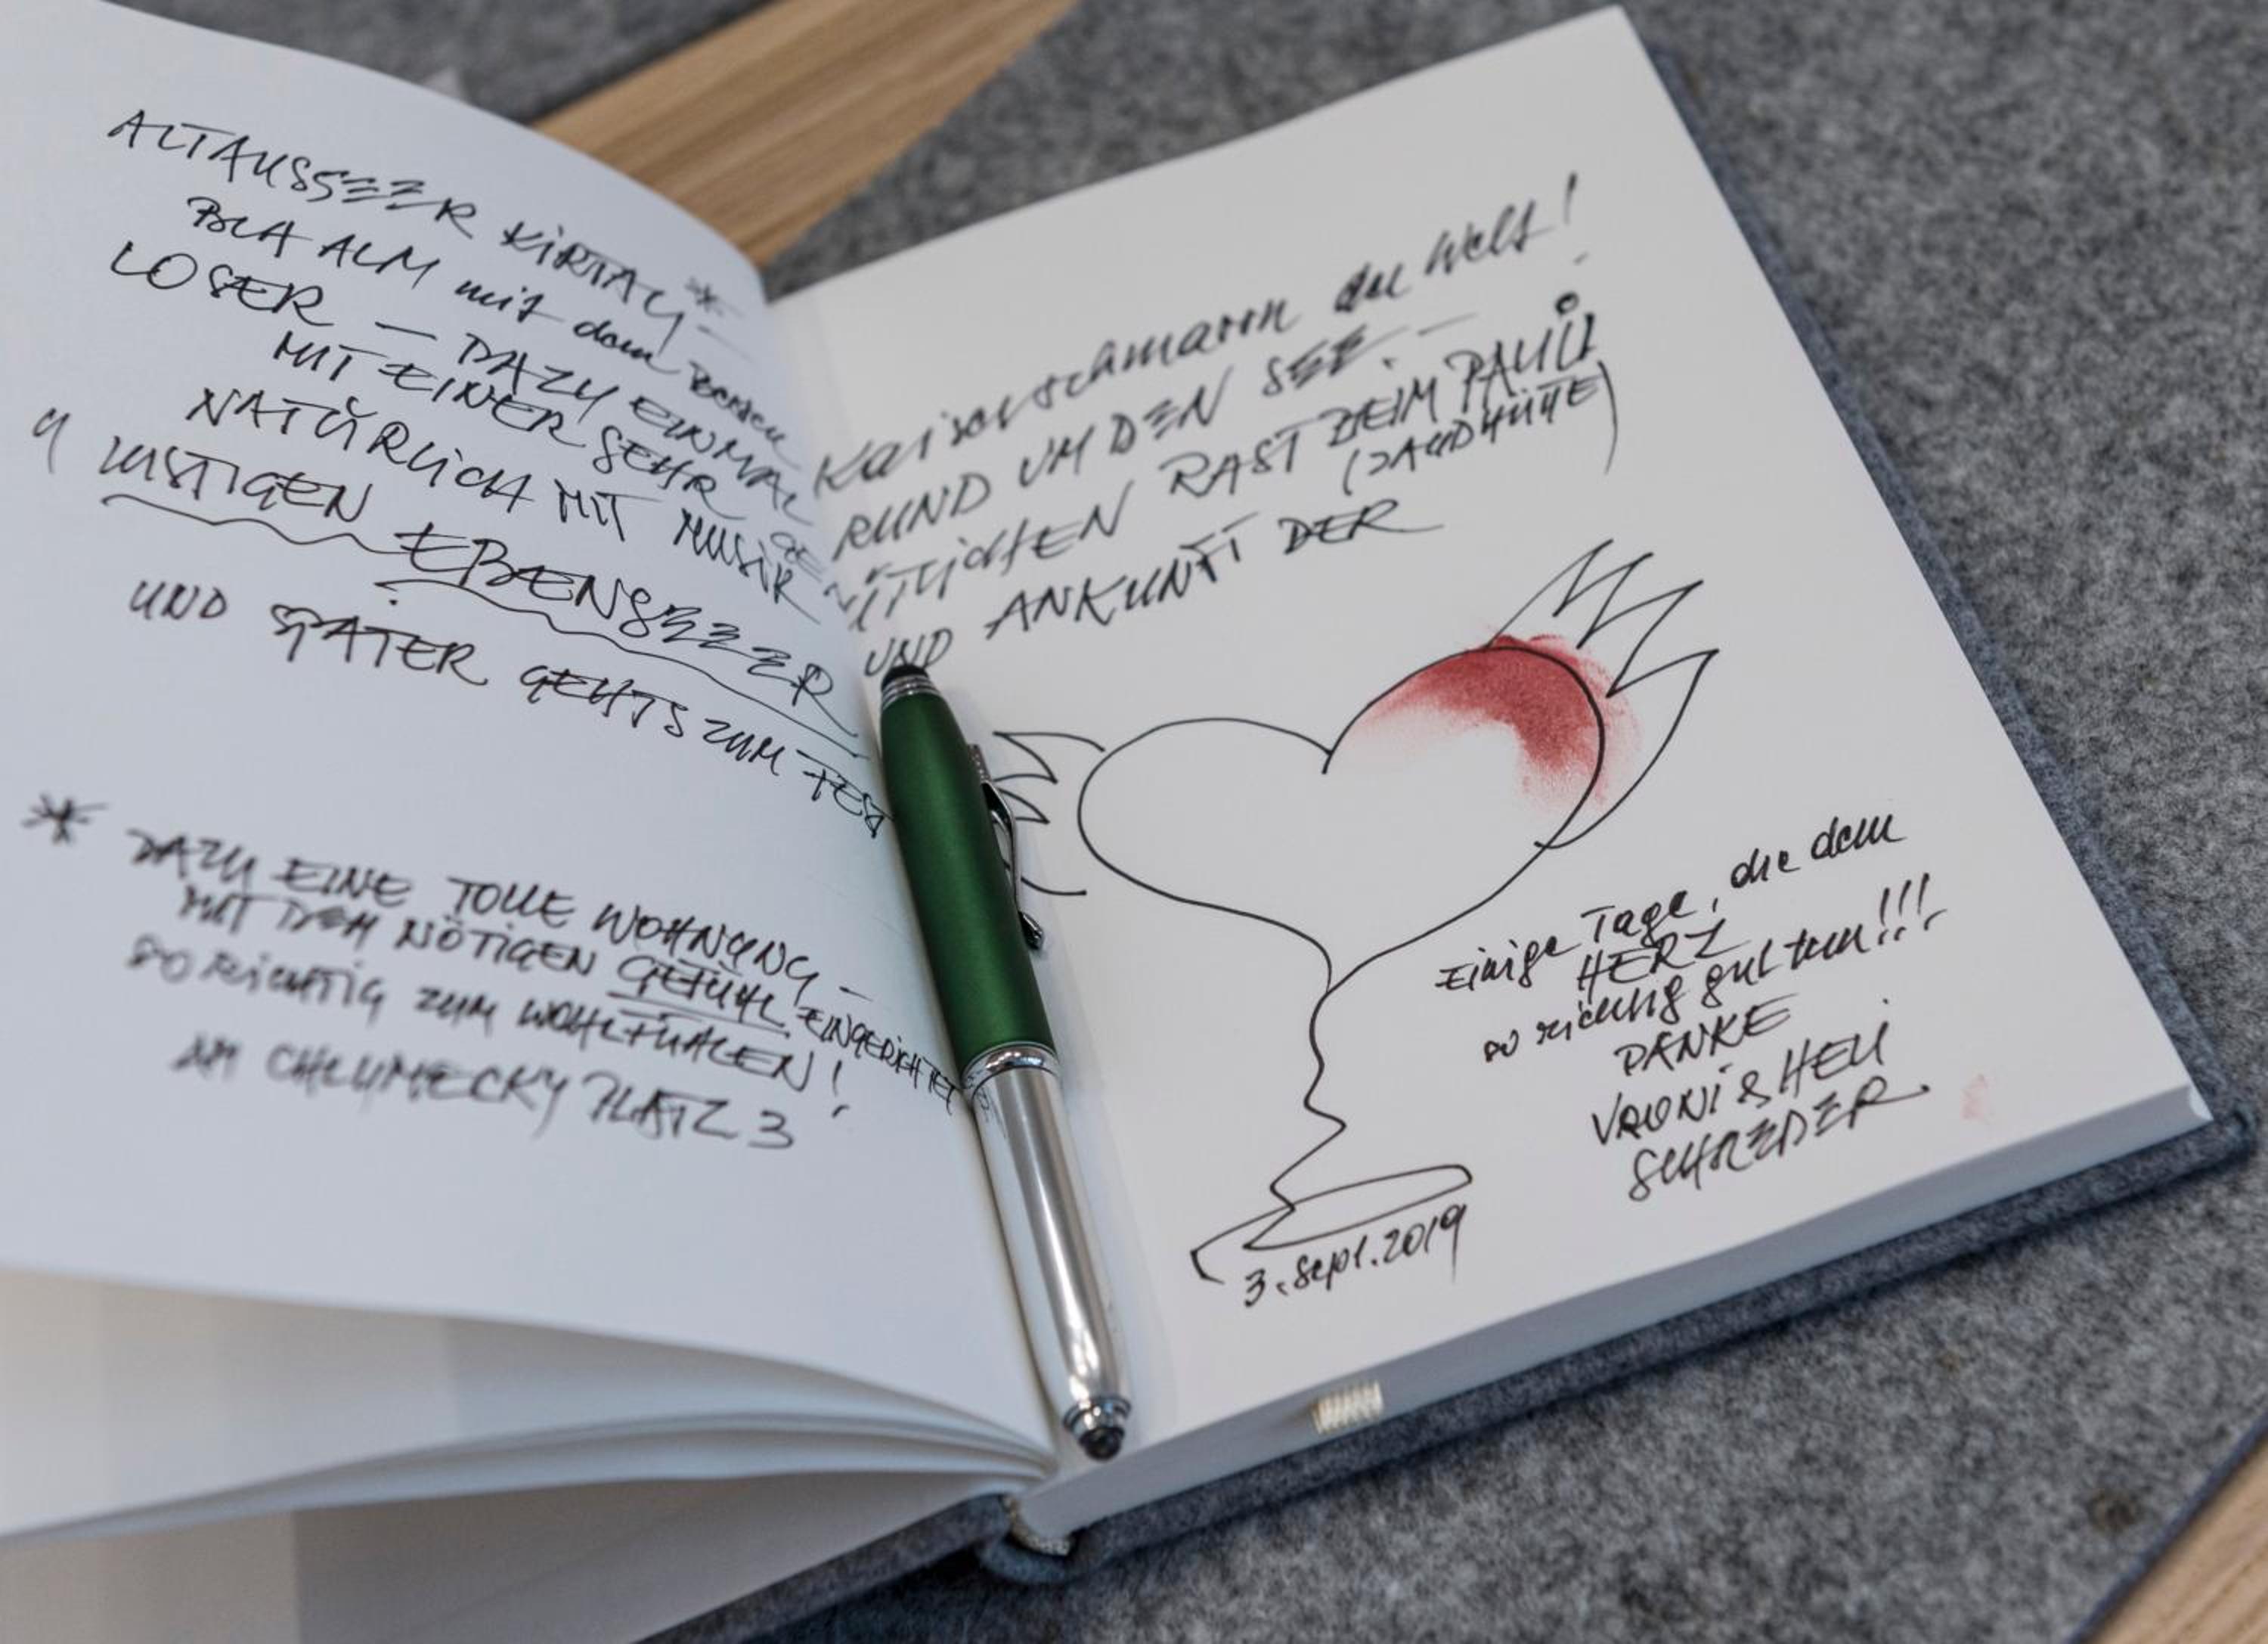 ALTAUSSEER KIRTAG –
BLA ALM mit dem besten *
LOSER – DAZU EINMAL
MIT EINER SEHR GE
NATÜRLICH MIT MUSIK
LUSTIGEN EBENSEEER
UND SPÄTER GEHTS ZUM FEST
* DAZU EINE TOLLE WOHNUNG –
MIT DEM NÖTIGEN GEFÜHL EINGERICHTET
SO RICHTIG ZUM WOHLFÜHLEN!
AM CHLUMECKY PLATZ 3
Kaiserschmarrn der Welt!
RUND UM DEN SEE. –
MÜTLICHEN RAST BEIM PAULI
(JAGDHÜTTE)
UND ANKUNFT DER
Einige Tage, die dem
HERZ
so richtig gut tun!!!
DANKE
VRONI & HELI
SCHREDER
3. Sept. 2019